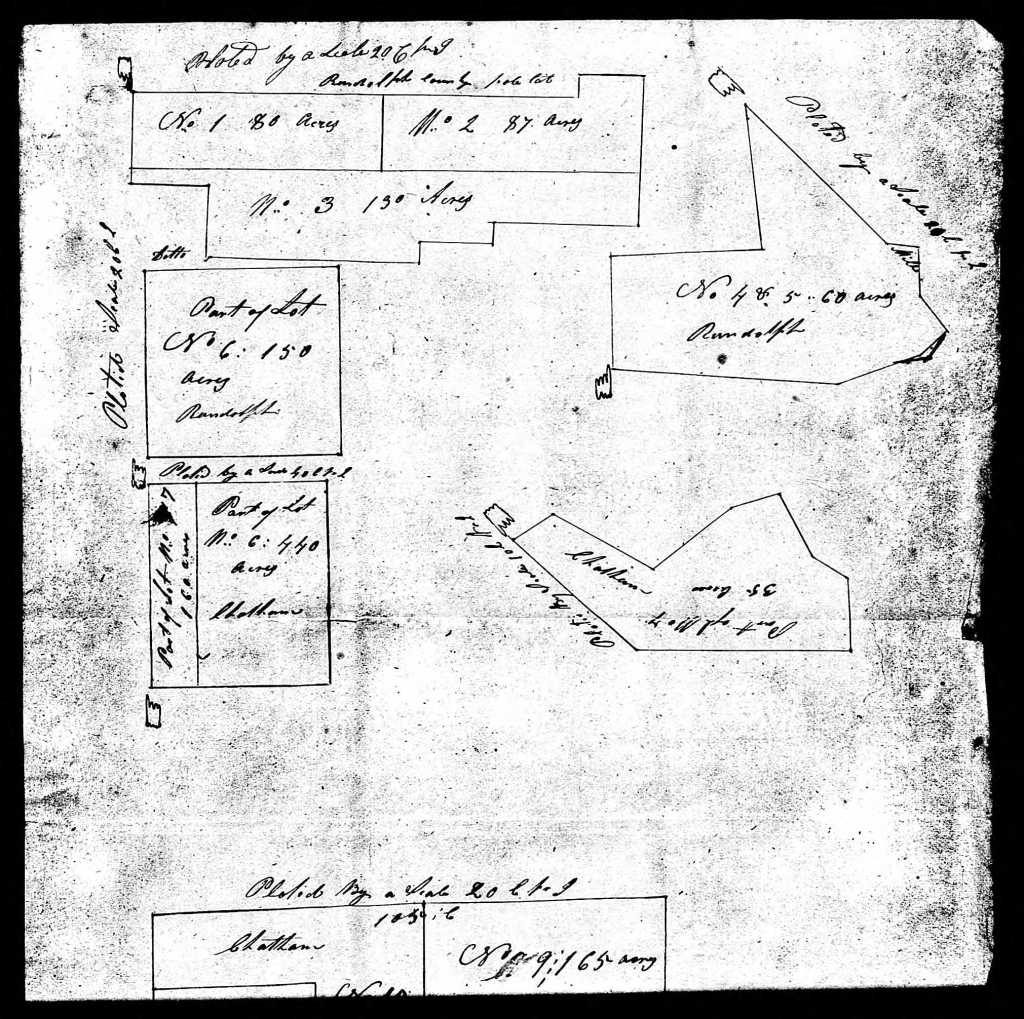 Ploted by a Scale 20 C pr I
Randolph County side lot
No 1 80 Acres
No 2 87 Acres
No 3 130 Acres
Ploted by a Scale 20 C pr I
Mill
No 4 & 5 : 60 acres
Randolph
Ditto
Plotid Scale 20 C I
Part of Lot
No 6 : 150
acres
Randolph
Plotid by a Scale 40 C pr I
Part of Lot No 7
160 acres
Part of Lot
No 6 : 440
Acres
Chatham
Plotid By Scale 10 C pr I
Chatham
Part of No 7
35 Acres
Plotid By a Scale 20 C pr I
Chatham
No 9 ; 165 acres